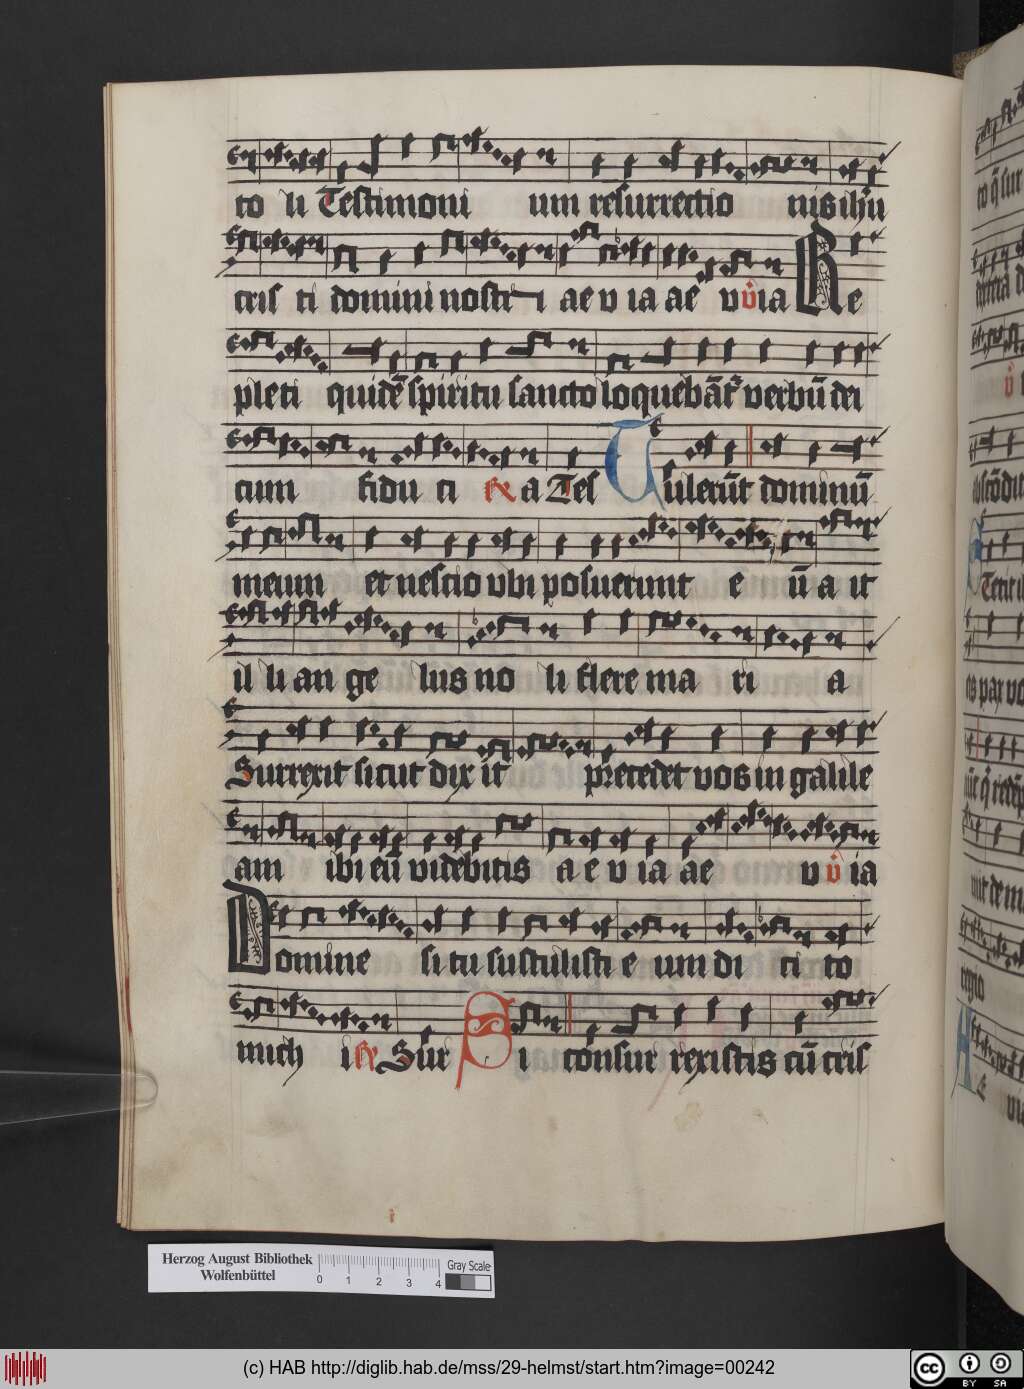 to li Testimoni um resurrectio nis ihū
cris ti domini nostr i ae v ia ae v v̊ ia Re
pleti quidē spiritu sancto loquebāt᷑ verbū dei
cum fidu ci a Tes Tulerūt dominū
meum et nescio vbi posuerunt e ū a it
il li an ge lus no li flere ma ri a
Surrexit sicut dix it precedet vos in galile
am ibi eū videbitis a e v ia ae v v̊ ia
Domine si tu sustulisti e um di ci to
mich i Sur Si consur rexistis cū cris
Herzog August Bibliothek
Wolfenbüttel
0 1 2 3 4
Gray Scale
(c) HAB http://diglib.hab.de/mss/29-helmst/start.htm?image=00242
cc BY SA